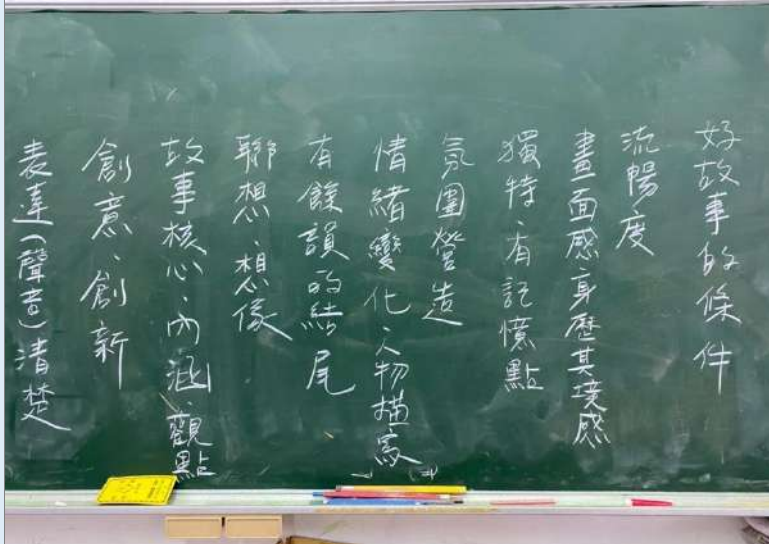 好故事的條件
流暢度
畫面感、身歷其境感
獨特、有記憶點
氛圍營造
情緒變化、人物描寫
有餘韻的結尾
聯想、想像
故事核心、內涵、觀點
創意、創新
表達(聲音)清楚